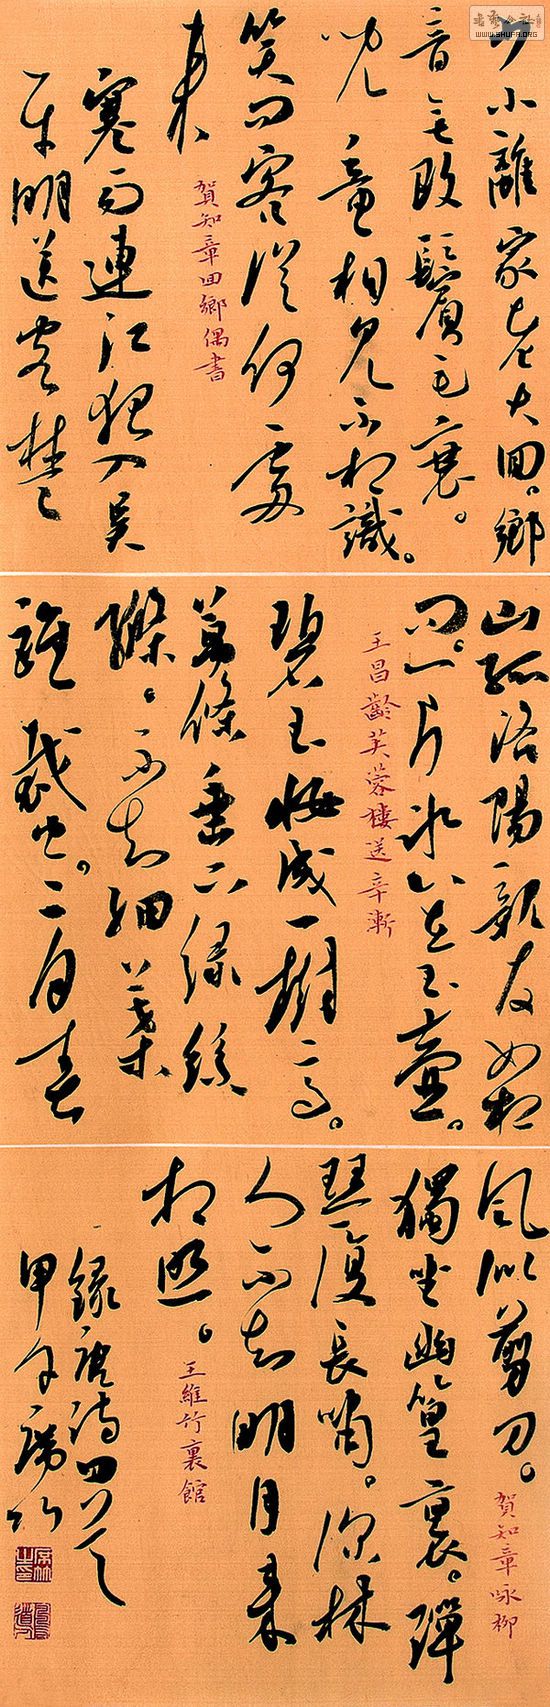 書藝公社
WWW.SHUFA.ORG
少小離家老大回。鄉
音無改鬢毛衰。
兒童相見不相識。
笑問客從何處
来
賀知章回鄉偶書
寒雨連江夜入吳
平明送客楚
山孤洛陽親友如相
問。一片冰心在玉壺。
王昌齡芙蓉樓送辛漸
碧玉妝成一樹高。
萬條垂下綠絲
絛。不知細葉
誰裁出。二月春
風似剪刀。
賀知章咏柳
獨坐幽篁裏。彈
琴復長嘯。深林
人不知明月来
相照。
王維竹裏館
錄唐詩四首
甲午